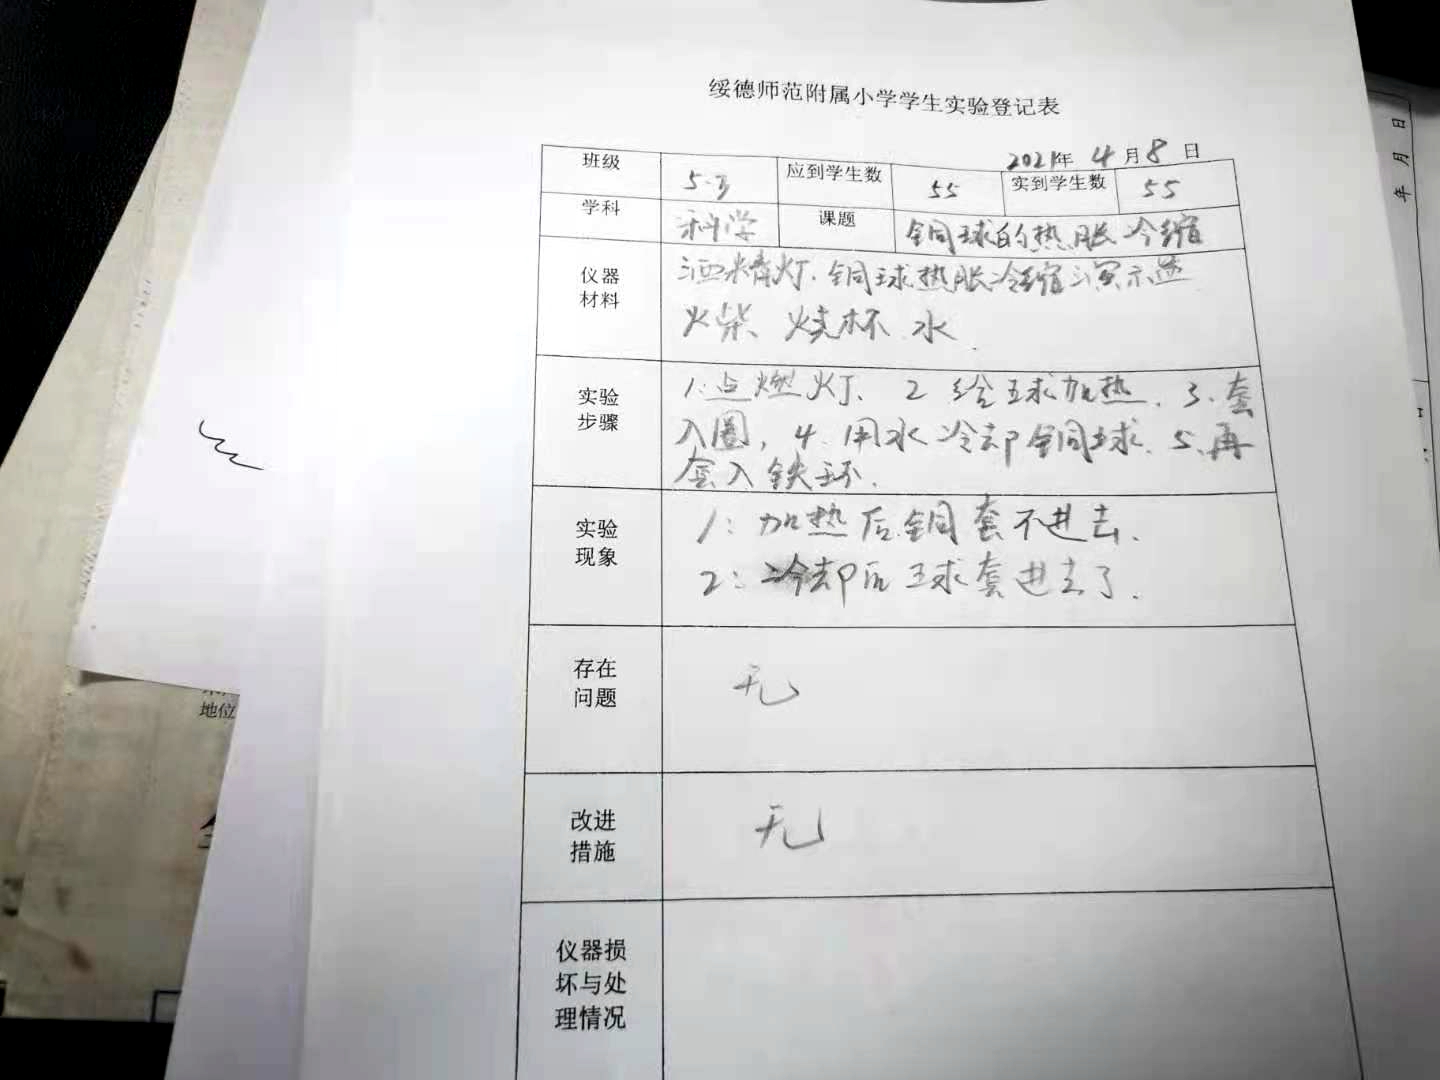 绥德师范附属小学学生实验登记表
2021年 4 月 8 日
班级 5.3 应到学生数 55 实到学生数 55
学科 科学 课题 铜球的热胀冷缩
仪器
材料
酒精灯、铜球热胀冷缩演示器
火柴、烧杯 水
实验
步骤
1.点燃灯、2 给球加热、3、套
入圈，4、用水冷却铜球、5、再
套入铁环.
实验
现象
1：加热后铜套不进去.
2：冷却后球套进去了.
存在
问题
无
改进
措施
无
仪器损
坏与处
理情况
年 月 日
地位